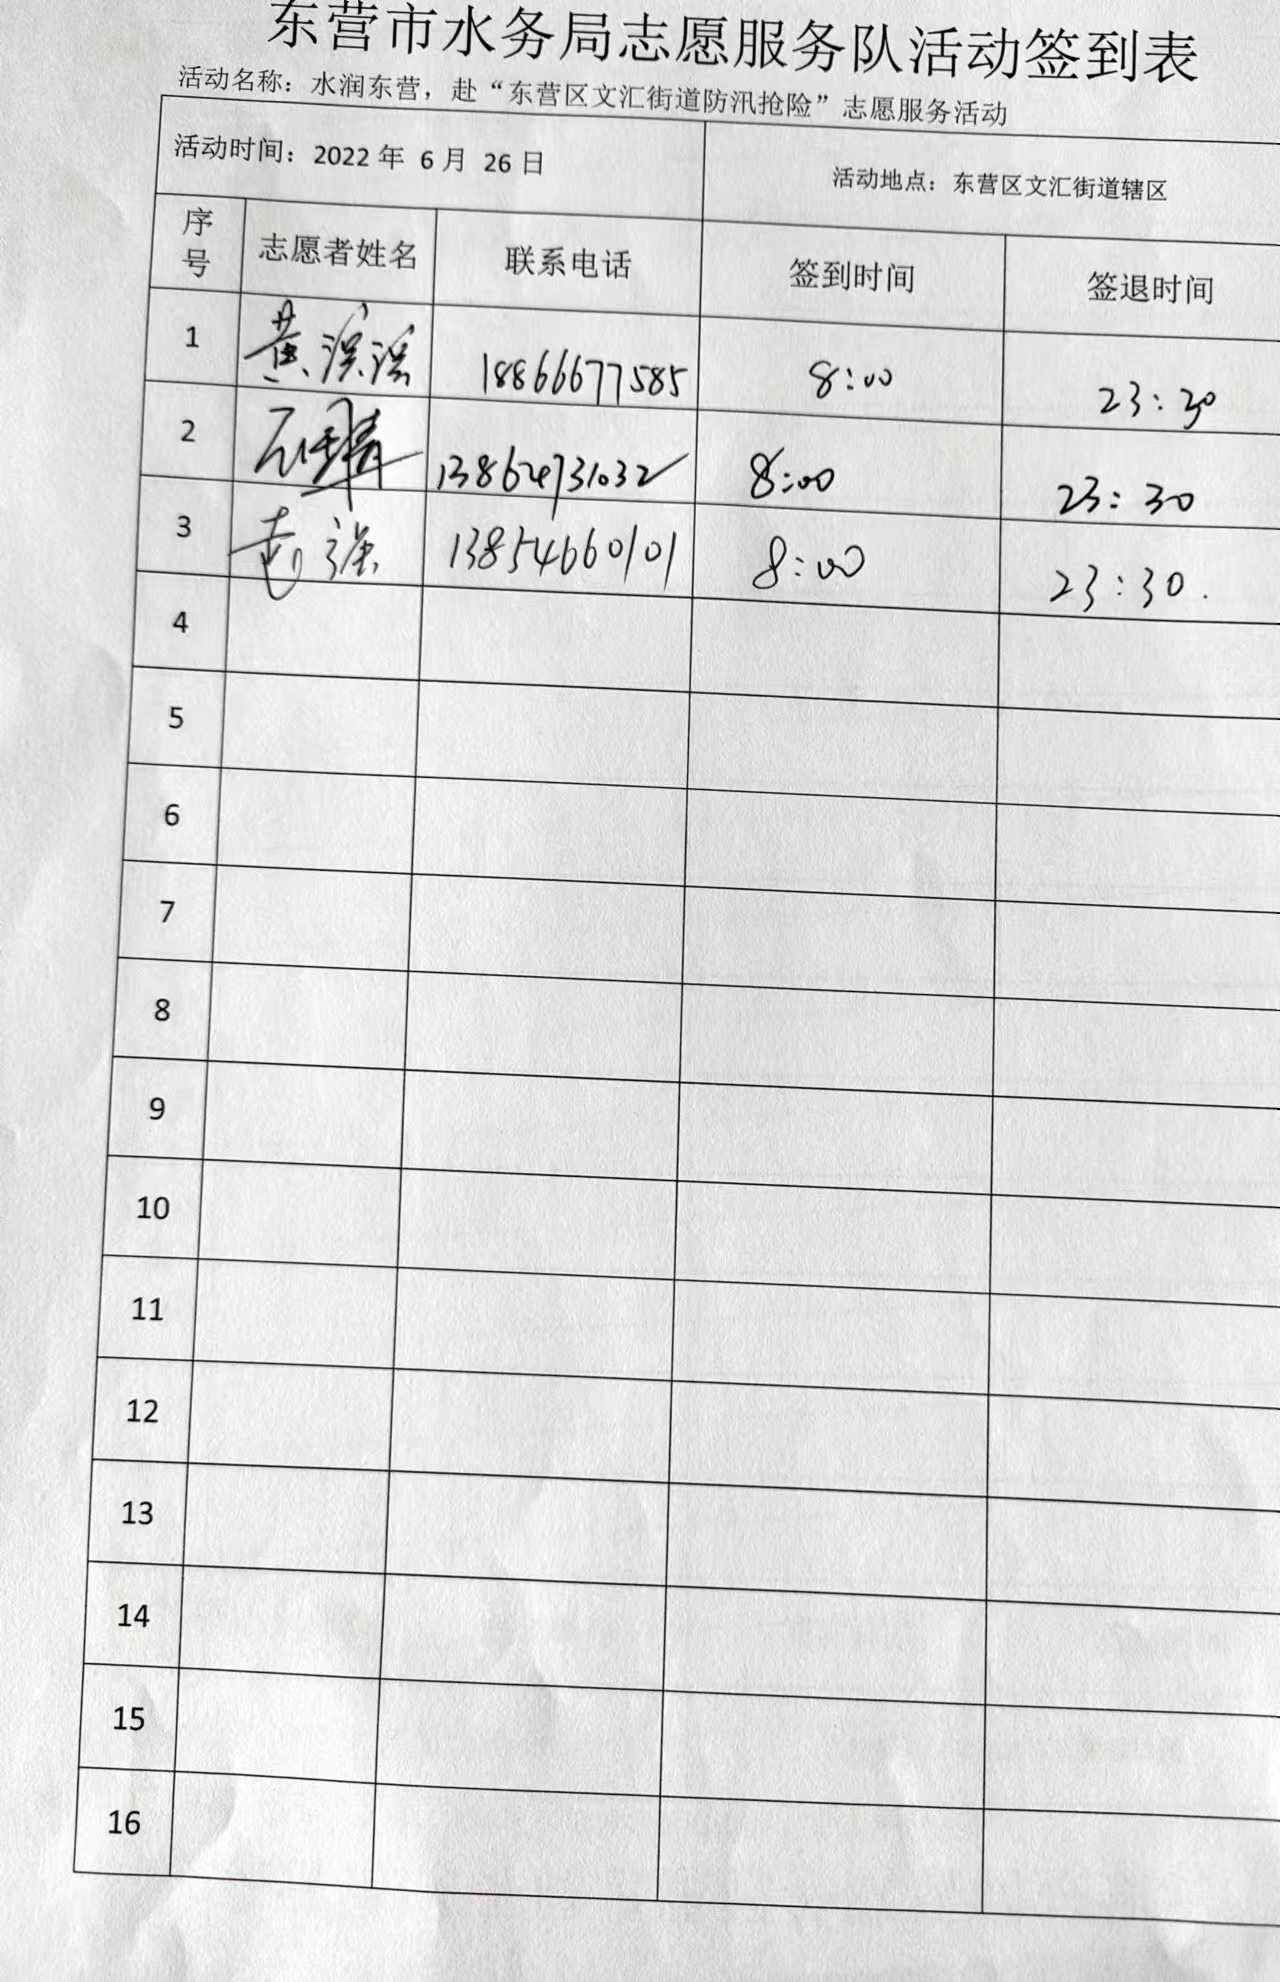 东营市水务局志愿服务队活动签到表
活动名称：水润东营，赴“东营区文汇街道防汛抢险”志愿服务活动
活动时间：2022 年 6 月 26 日 活动地点：东营区文汇街道辖区
序号 志愿者姓名 联系电话 签到时间 签退时间
1 黄溪溪 18866677585 8:00 23:30
2 13864731032 8:00 23:30
3 13854660101 8:00 23:30.
4
5
6
7
8
9
10
11
12
13
14
15
16